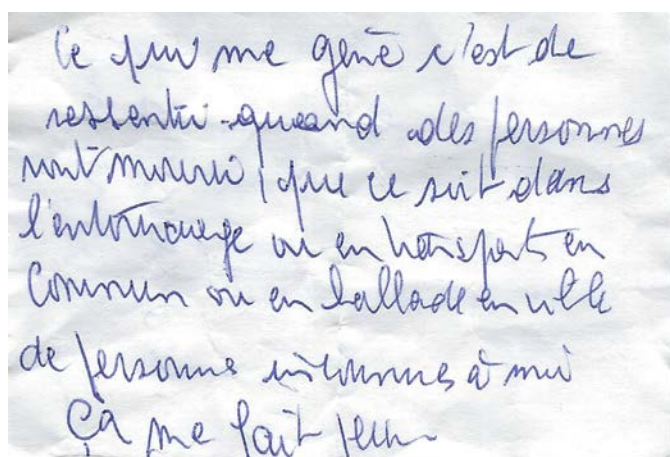 Ce qui me gène c'est de
ressentir quand des personnes
vont mourir, que ce soit dans
l'entourage ou en transports en
Commun ou en ballade en ville
de personne inconnues à moi
Çà me fait peur